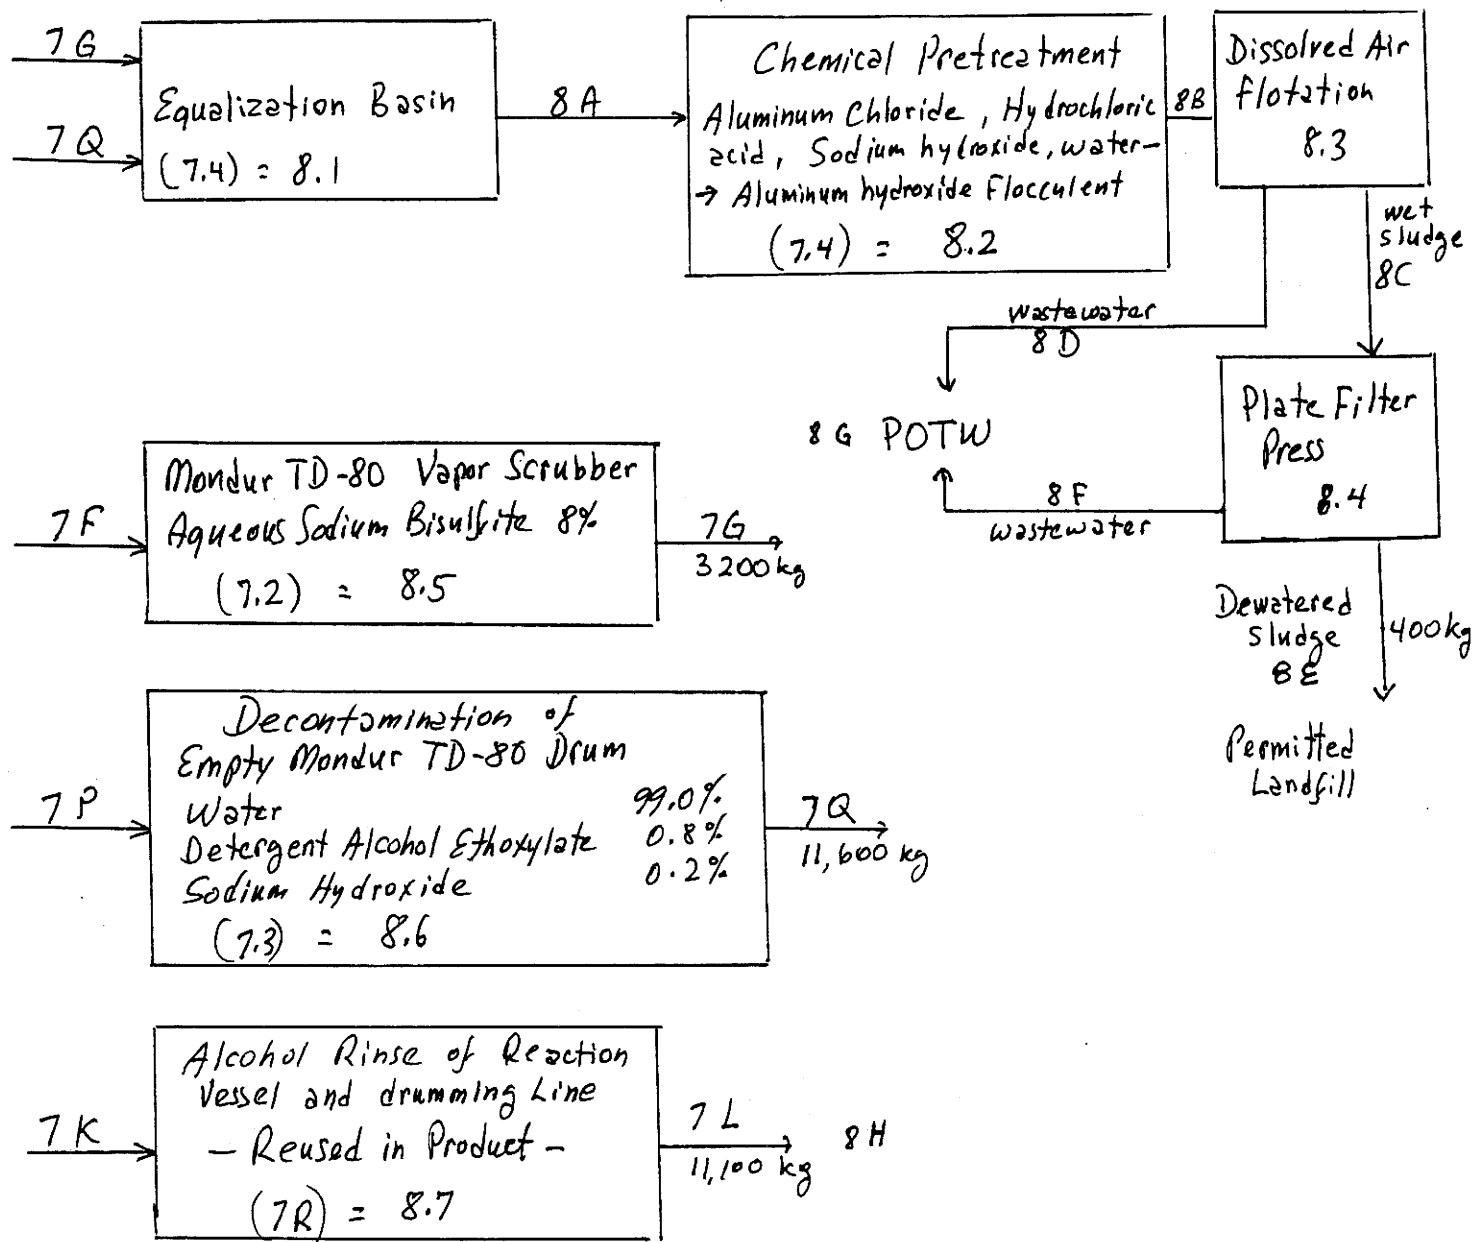 7G
7Q
Equalization Basin
(7.4) = 8.1
8A
Chemical Pretreatment
Aluminum Chloride, Hydrochloric
acid, Sodium hydroxide, water-
→ Aluminum hydroxide Flocculent
(7.4) = 8.2
8B
Dissolved Air
flotation
8.3
wet
sludge
8C
wastewater
8D
8G POTW
8F
wastewater
Plate Filter
Press
8.4
Dewatered
sludge
8E
400kg
Permitted
Landfill
7F
Mondur TD-80 Vapor Scrubber
Aqueous Sodium Bisulfite 8%
(7.2) = 8.5
7G
3200kg
7P
Decontamination of
Empty Mondur TD-80 Drum
Water 99.0%
Detergent Alcohol Ethoxylate 0.8%
Sodium Hydroxide 0.2%
(7.3) = 8.6
7Q
11,600 kg
7K
Alcohol Rinse of Reaction
Vessel and drumming Line
- Reused in Product -
(7R) = 8.7
7L
11,100 kg
8H